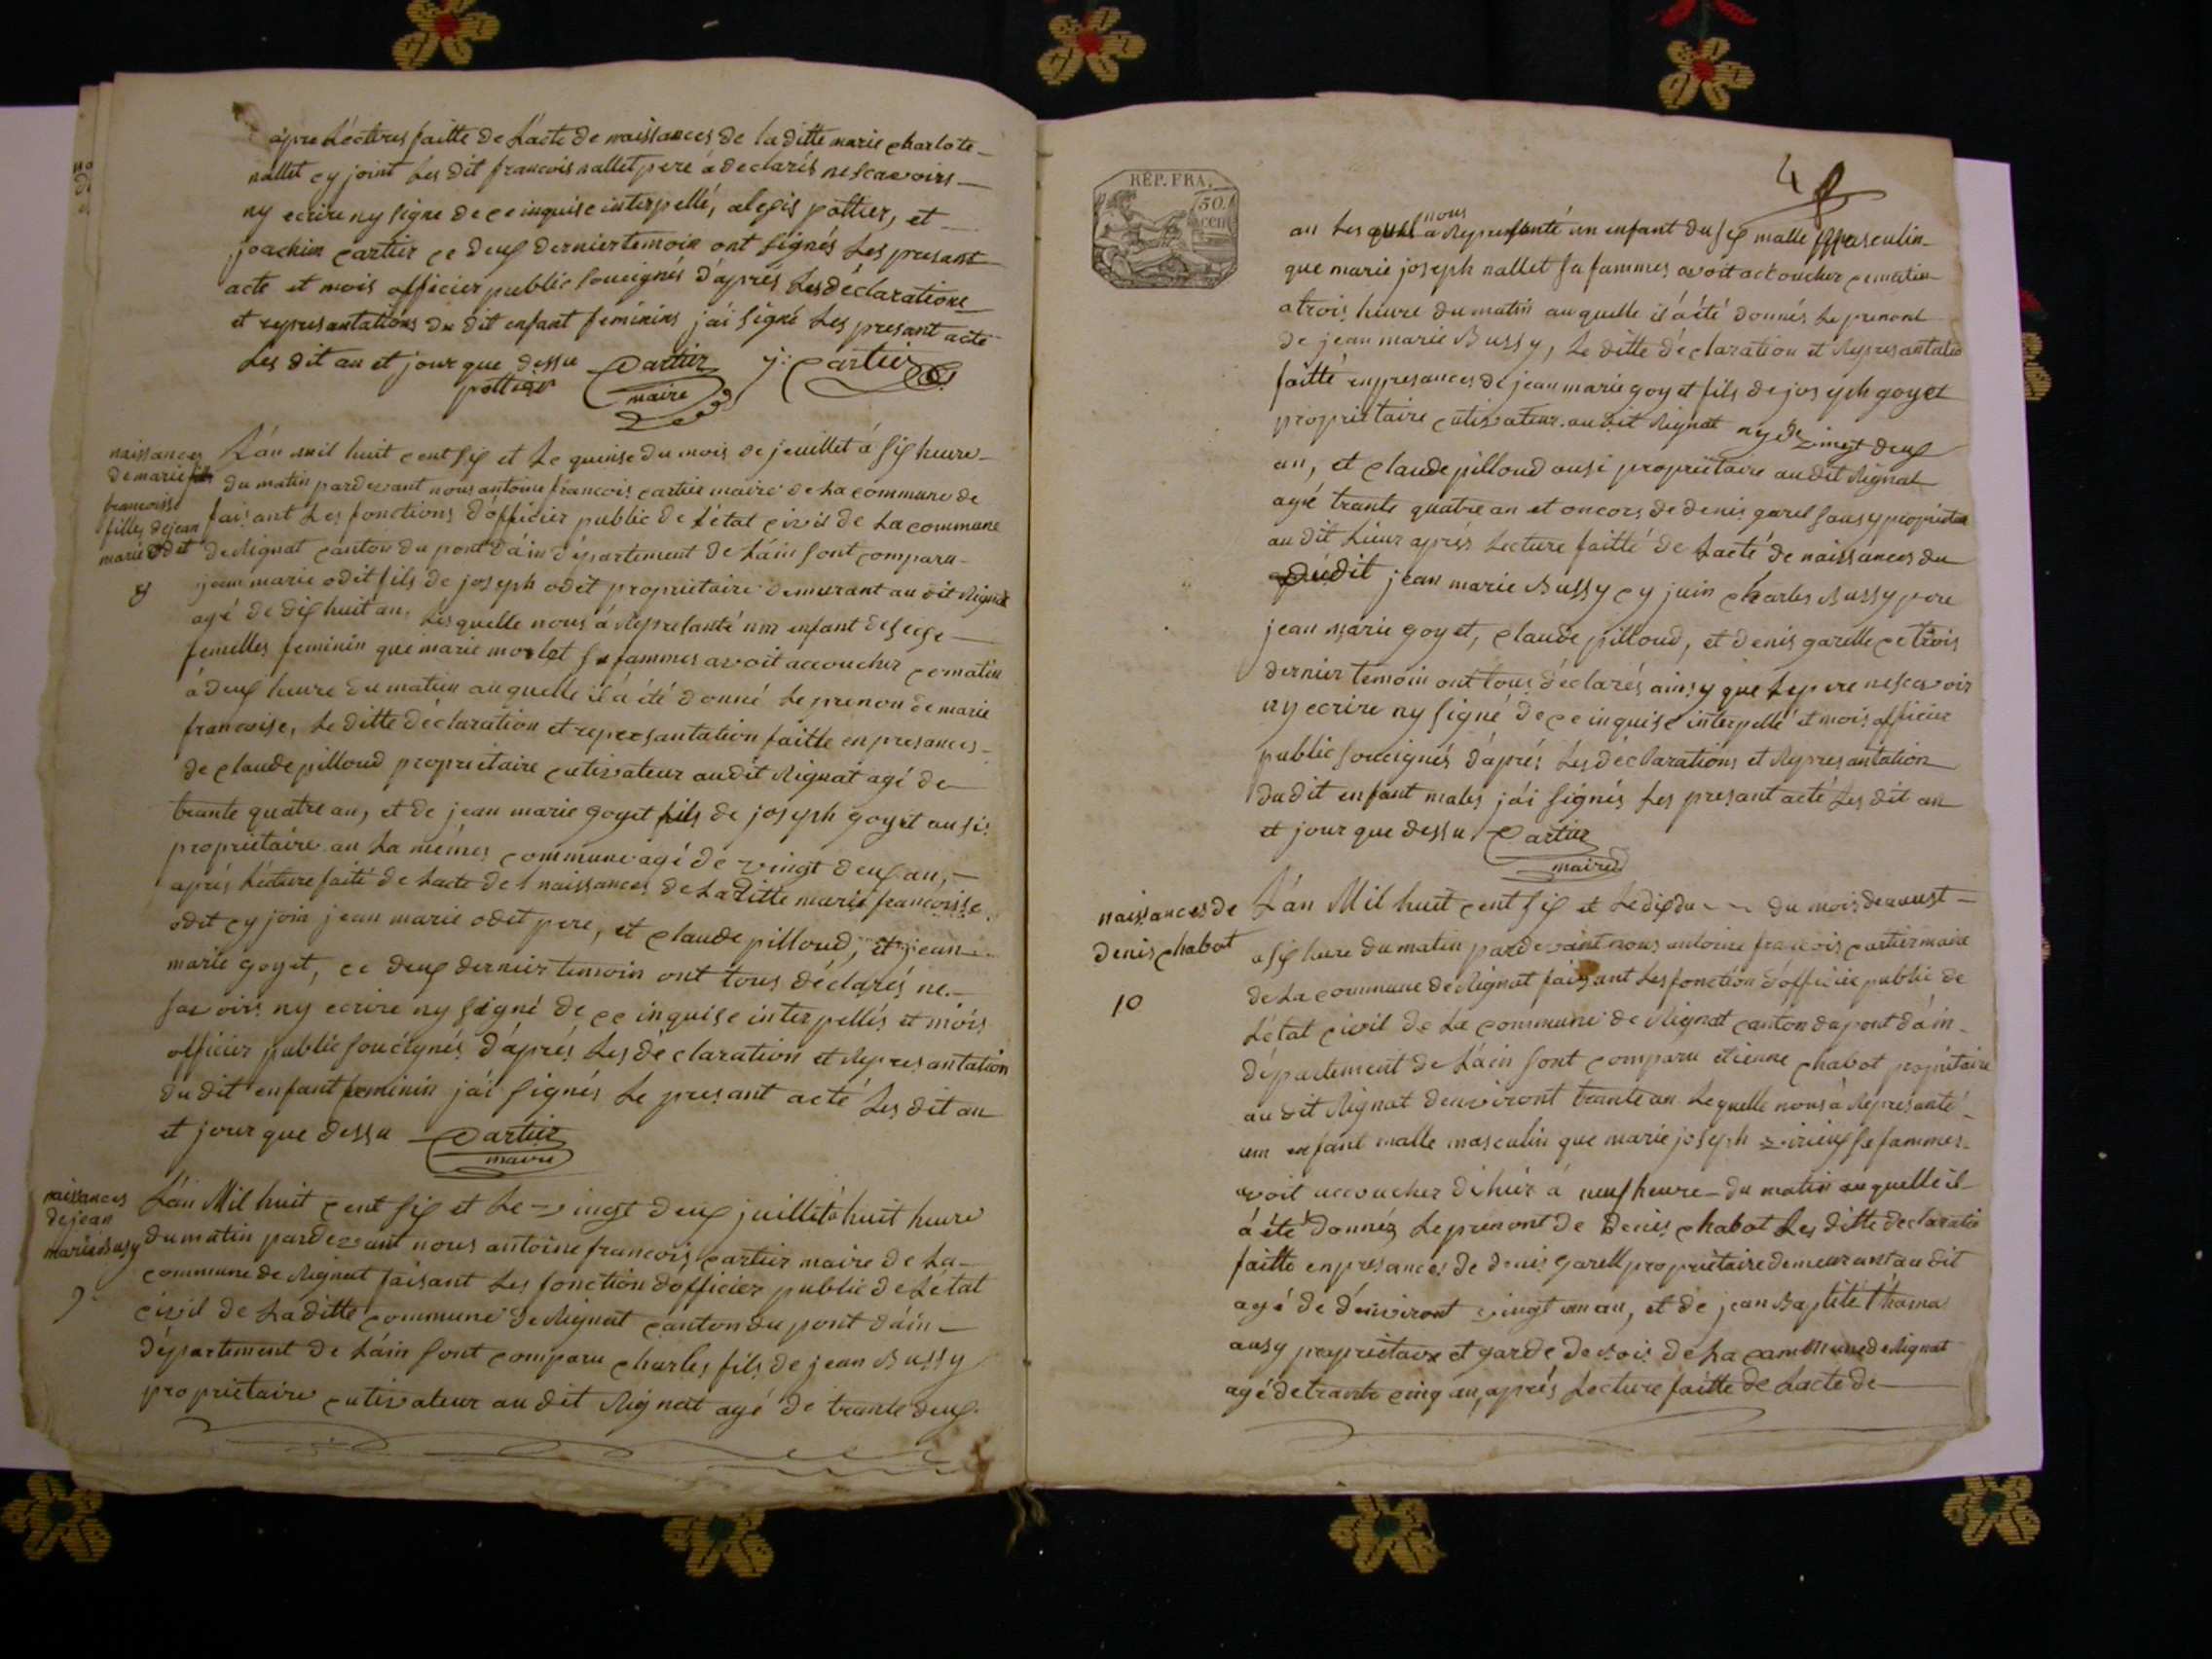 apre Léctures faitte de L'acte de naissances de la ditte marie charlote
nallet cy joint Les dit francois nallet pere á declarés nescavoirs
ny ecrire ny signe de ce inquise interpellé, alexis pottier, et
joachim cartier ce deux dernier temoin ont signés Les presant
acte et mois officier public soucignés d'aprés Les déclarations
et represantations du dit enfant feminins j'ai signé Les presant acte
Les dit an et jour que dessu Cartier j: Cartier
pottier maire
naissances
de marie
francoisse
filles de jean
marie odet
8
L'án mil huit cent six et Le quinse du mois de jeuillet á six heure
du matin pardevant nous antoine francois cartier maire de La commune de
faisant Les fonctions d'officier public de L'état civil de La commune
de Rignat canton du pont d'áin département de L'áin sont comparu
jean marie odet fils de joseph odet propriétaire demurant au dit Rignat
agé de dix huit an, Les quelle nous á Represanté un enfant de sexse
femelles feminin que marie morlet sa fammes avoit accoucher ce matin
á deux heure du matin au quelle il á été donné Le prenon de marie
francoise, Le ditte déclaration et represantation faitte en presances
de claude pilloud propriétaire cutivateur audit Rignat agé de
trante quatre an, et de jean marie goyet fils de joseph goyet ausi
propriétaire au La mémes commune agé de vingt deux an,
aprés Lécture faité de L'acte de naissances de La ditte marie francoisse
odet cy join jean marie odet pere, et claude pilloud, et jean
marie goyet, ce deux dernier temoin ont tous déclarés ne
savoirs ny ecrire ny signé de ce inquise interpellés et mois
officier public soucignés d'áprés Les déclaration et Represantation
du dit enfant feminin j'ái signés Le presant acté Les dit an
et jour que dessu Cartier
maire
naissances
de jean
marie Busy
9
L'án Mil huit cent six et Le vingt deux juillet á huit heure
du matin pardevant nous antoine francois cartier maire de La
commune de Rignat faisant Les fonction d'officier public de L'état
civil de La ditte commune de Rignat canton du pont d'áin
département de L'áin sont comparu charles fils de jean Bussy
propriétaire cutivateur au dit Rignat agé de trante deux
RÉP. FRA.
50.
cent
4
an Les quel nous a Represanté un enfant du sex malle masculin
que marie joseph nallet sa fammes avoit ackoucher ce matin
a trois heure du matin au quelle il á été donnés Le prenont
de jean marie Bussy, Le ditte déclaration et Represantatio
faitté en presances de jean marie goyet fils de joseph goyet
propriétaire cutivateur au dit Rignat agé de vingt deux
an, et claude pilloud ausi propriétaire audit Rignat
agé trante quatre an et oncors de denis garel sausy proprietai
au dit Lieux aprés Lecture faitté de L'acté de naissances du
dit jean marie Bussy cy juin charles Bussy pere
jean marie goyet, claude pilloud, et denis garelle ce trois
dernier temoin ont tous déclarés ainsy que Le pere nescavoir
ny ecrire ny signé de ce inquise interpellé et mois officier
public soucignés d'áprés Les déclarations et Represantation
dudit enfant males j'ái signés Les presant acté Les dit an
et jour que dessu Cartier
maire
naissances de
denis chabot
10
L'án Mil huit cent six et Le dix du du mois de auust
a six heure du matin pardevant nous antoine francois cartier maire
de La commune de Rignat faisant Les fonction d'officier public de
L'état civil de La commune de Rignat canton du pont d'áin
département de L'áin sont comparu etienne chabot propriétaire
au dit Rignat d'environt trante an Lequelle nous á Represanté
um enfant malle masculin que marie joseph virieux sa fammes
avoit accoucher d'hier á neuf heure du matin auquelle il
á été donnéz Le prenont de Denis chabot Les ditte declaratio
faitte en presances de denis garell propriétaire demeurant au dit
agé de d'environt vingt un an, et de jean Baptité thoma
ausy propriétaire et garde de bois de La commune de Rignat
agé de trante cinq an, aprés Lecture faitte de L'acte de